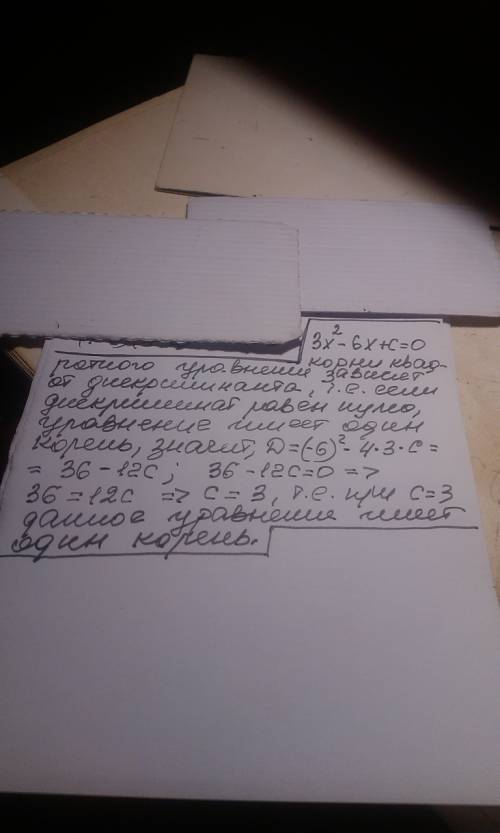 3x²-6x+c=0
корни квад-
ратного уравнения зависет
от дискриминанта, т.е. если
дискриминат равен нулю,
уравнение имеет один
корень, значит, D=(-6)²-4·3·c=
= 36-12c; 36-12c=0 =>
36=12c => c=3, т.е. при c=3
данное уравнение имеет
один корень.